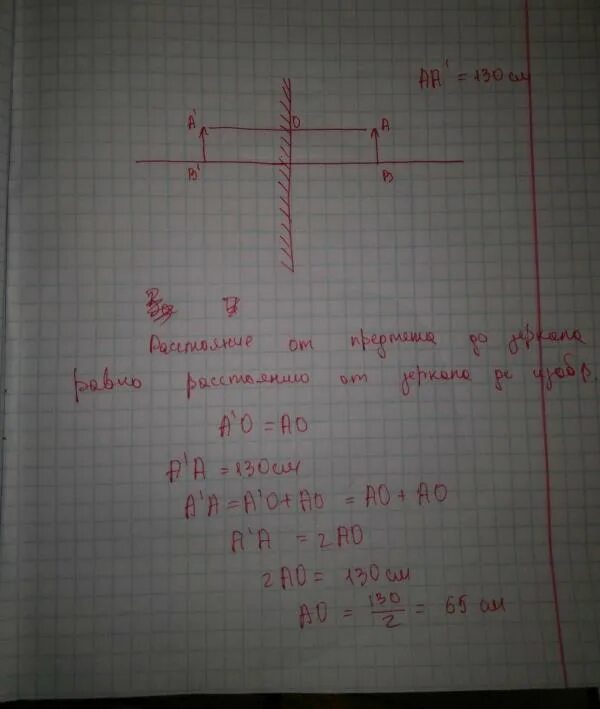 AA' = 130 см
A' O A
B' B
Расстояние от предмета до зеркала
равно расстоянию от зеркала до изобр
A'O = AO
A'A = 130 см
A'A = A'O + AO = AO + AO
A'A = 2AO
2AO = 130 см
AO = 130/2 = 65 см